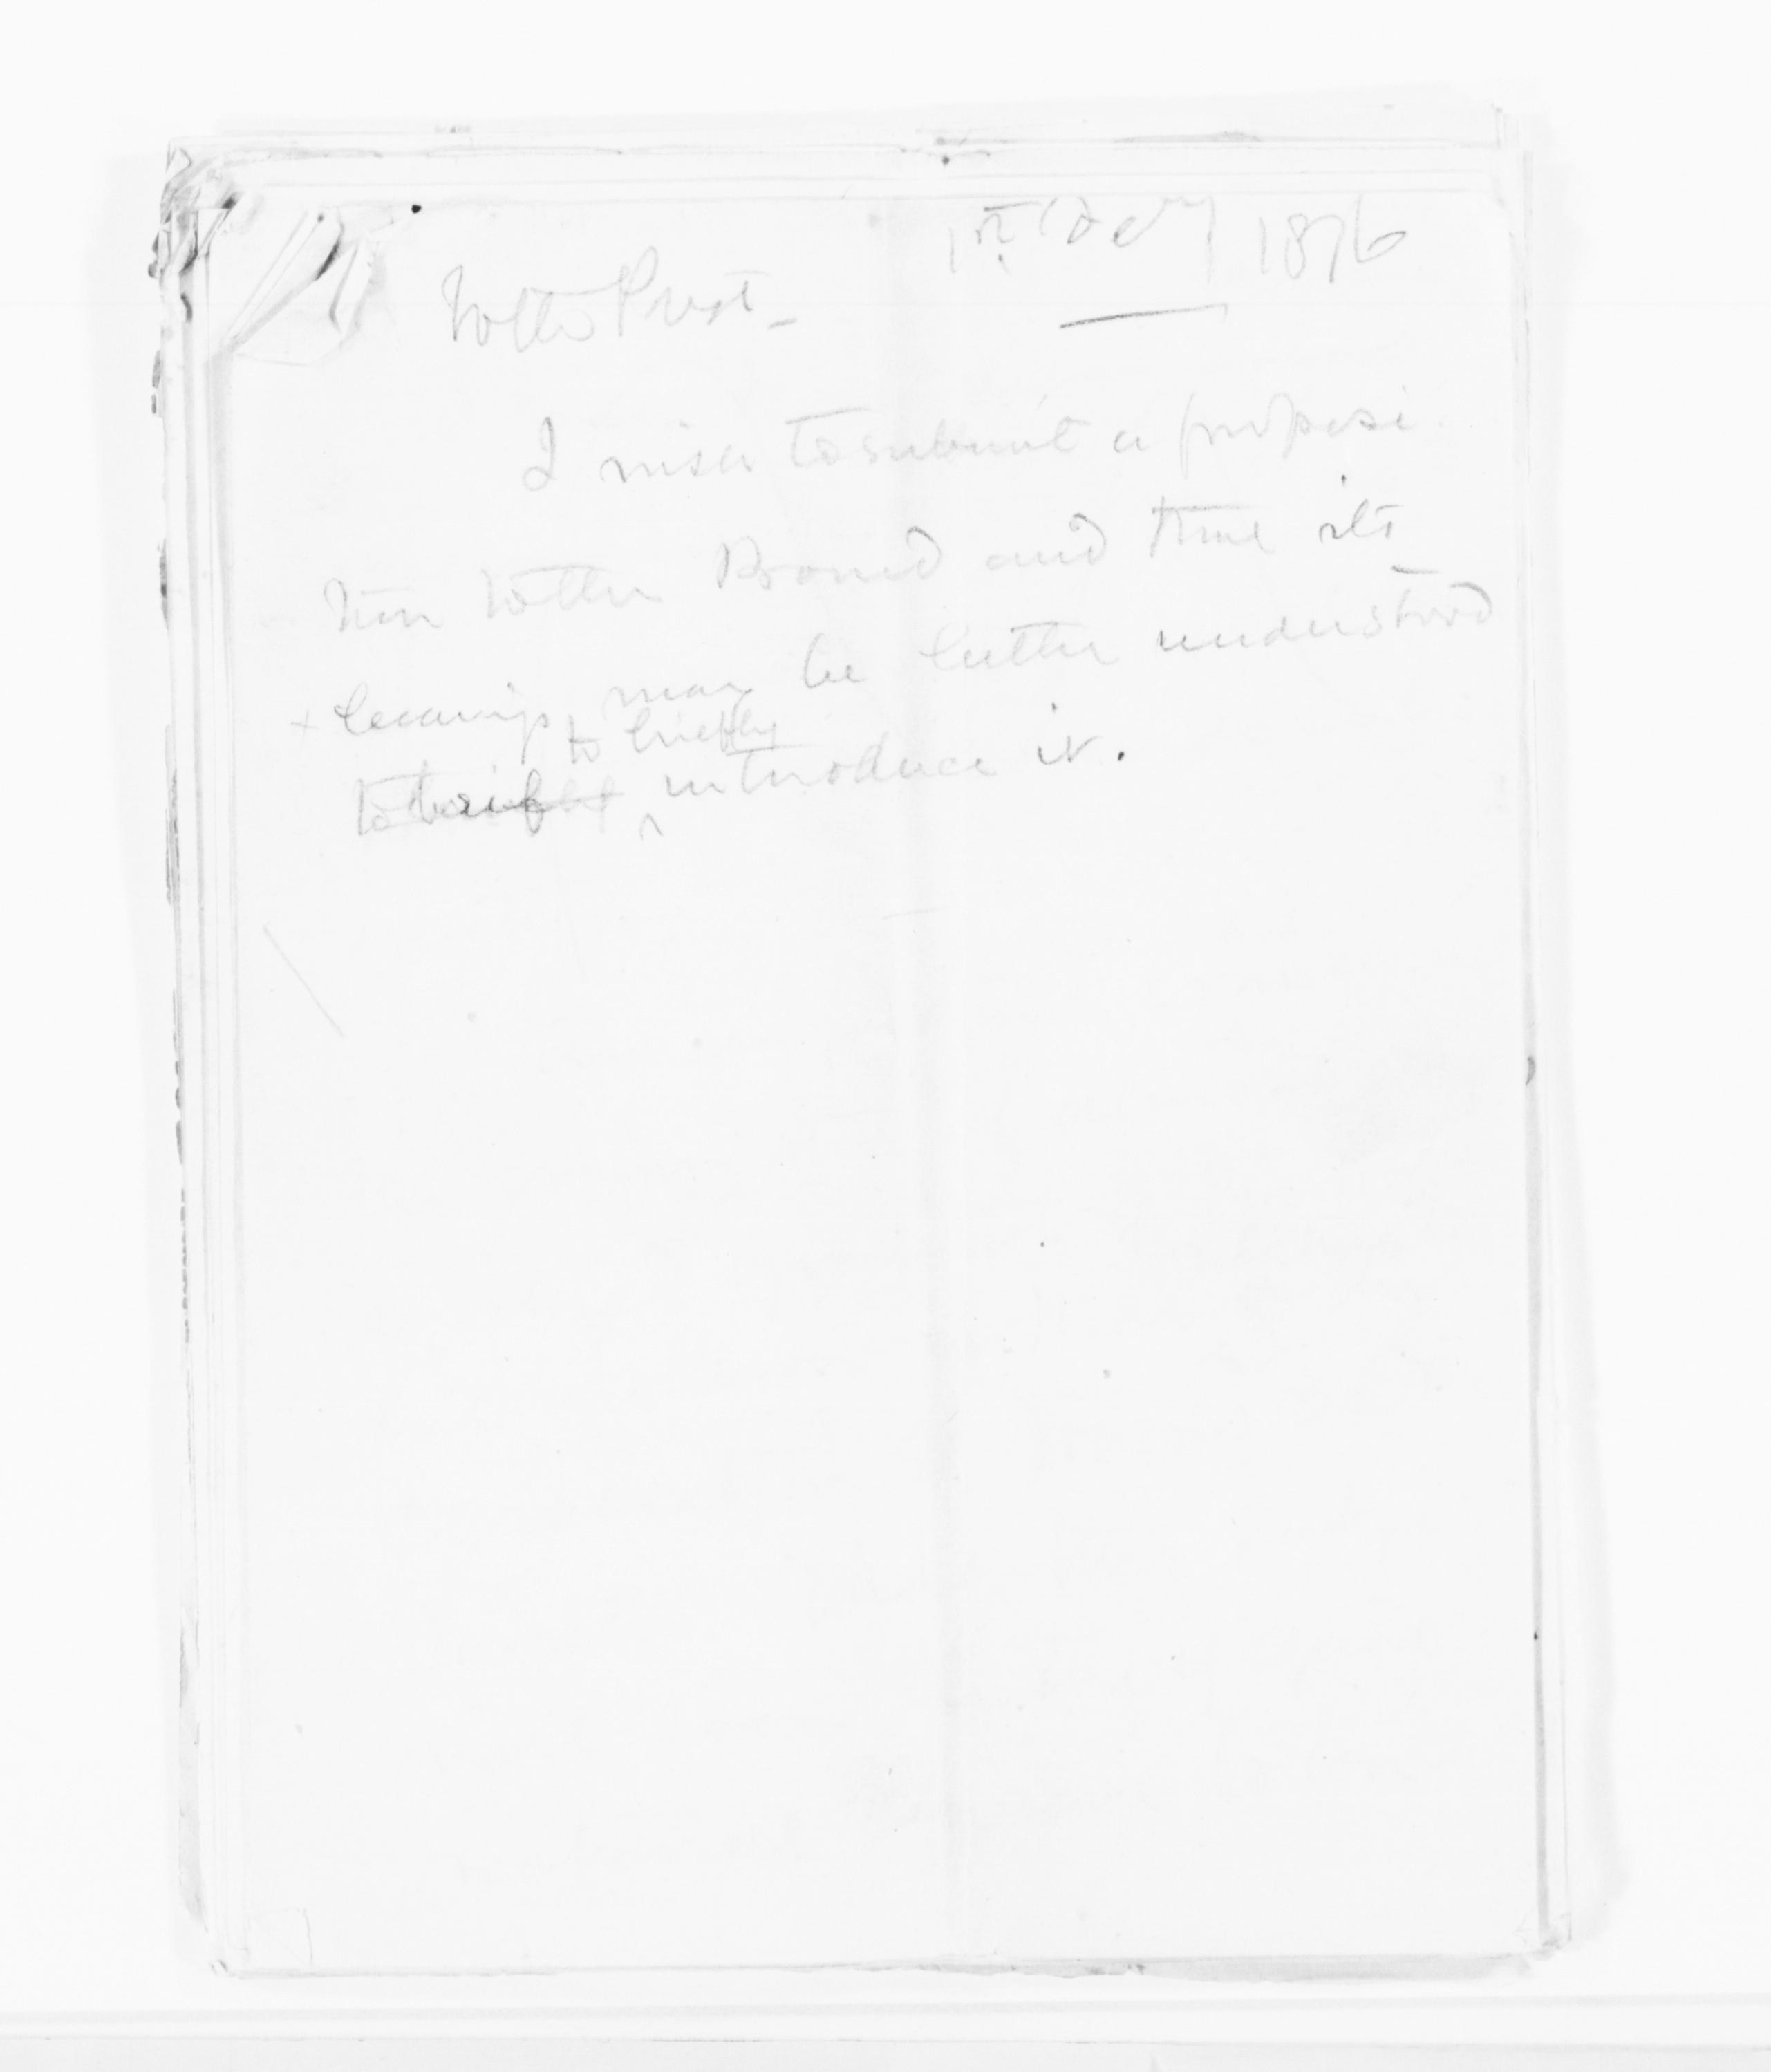 1st Decr 1876
To the Prest -
I wish to submit a proposi
tion to the Board and that its
+ bearings may be better understood
to briefly
to brief introduce it.